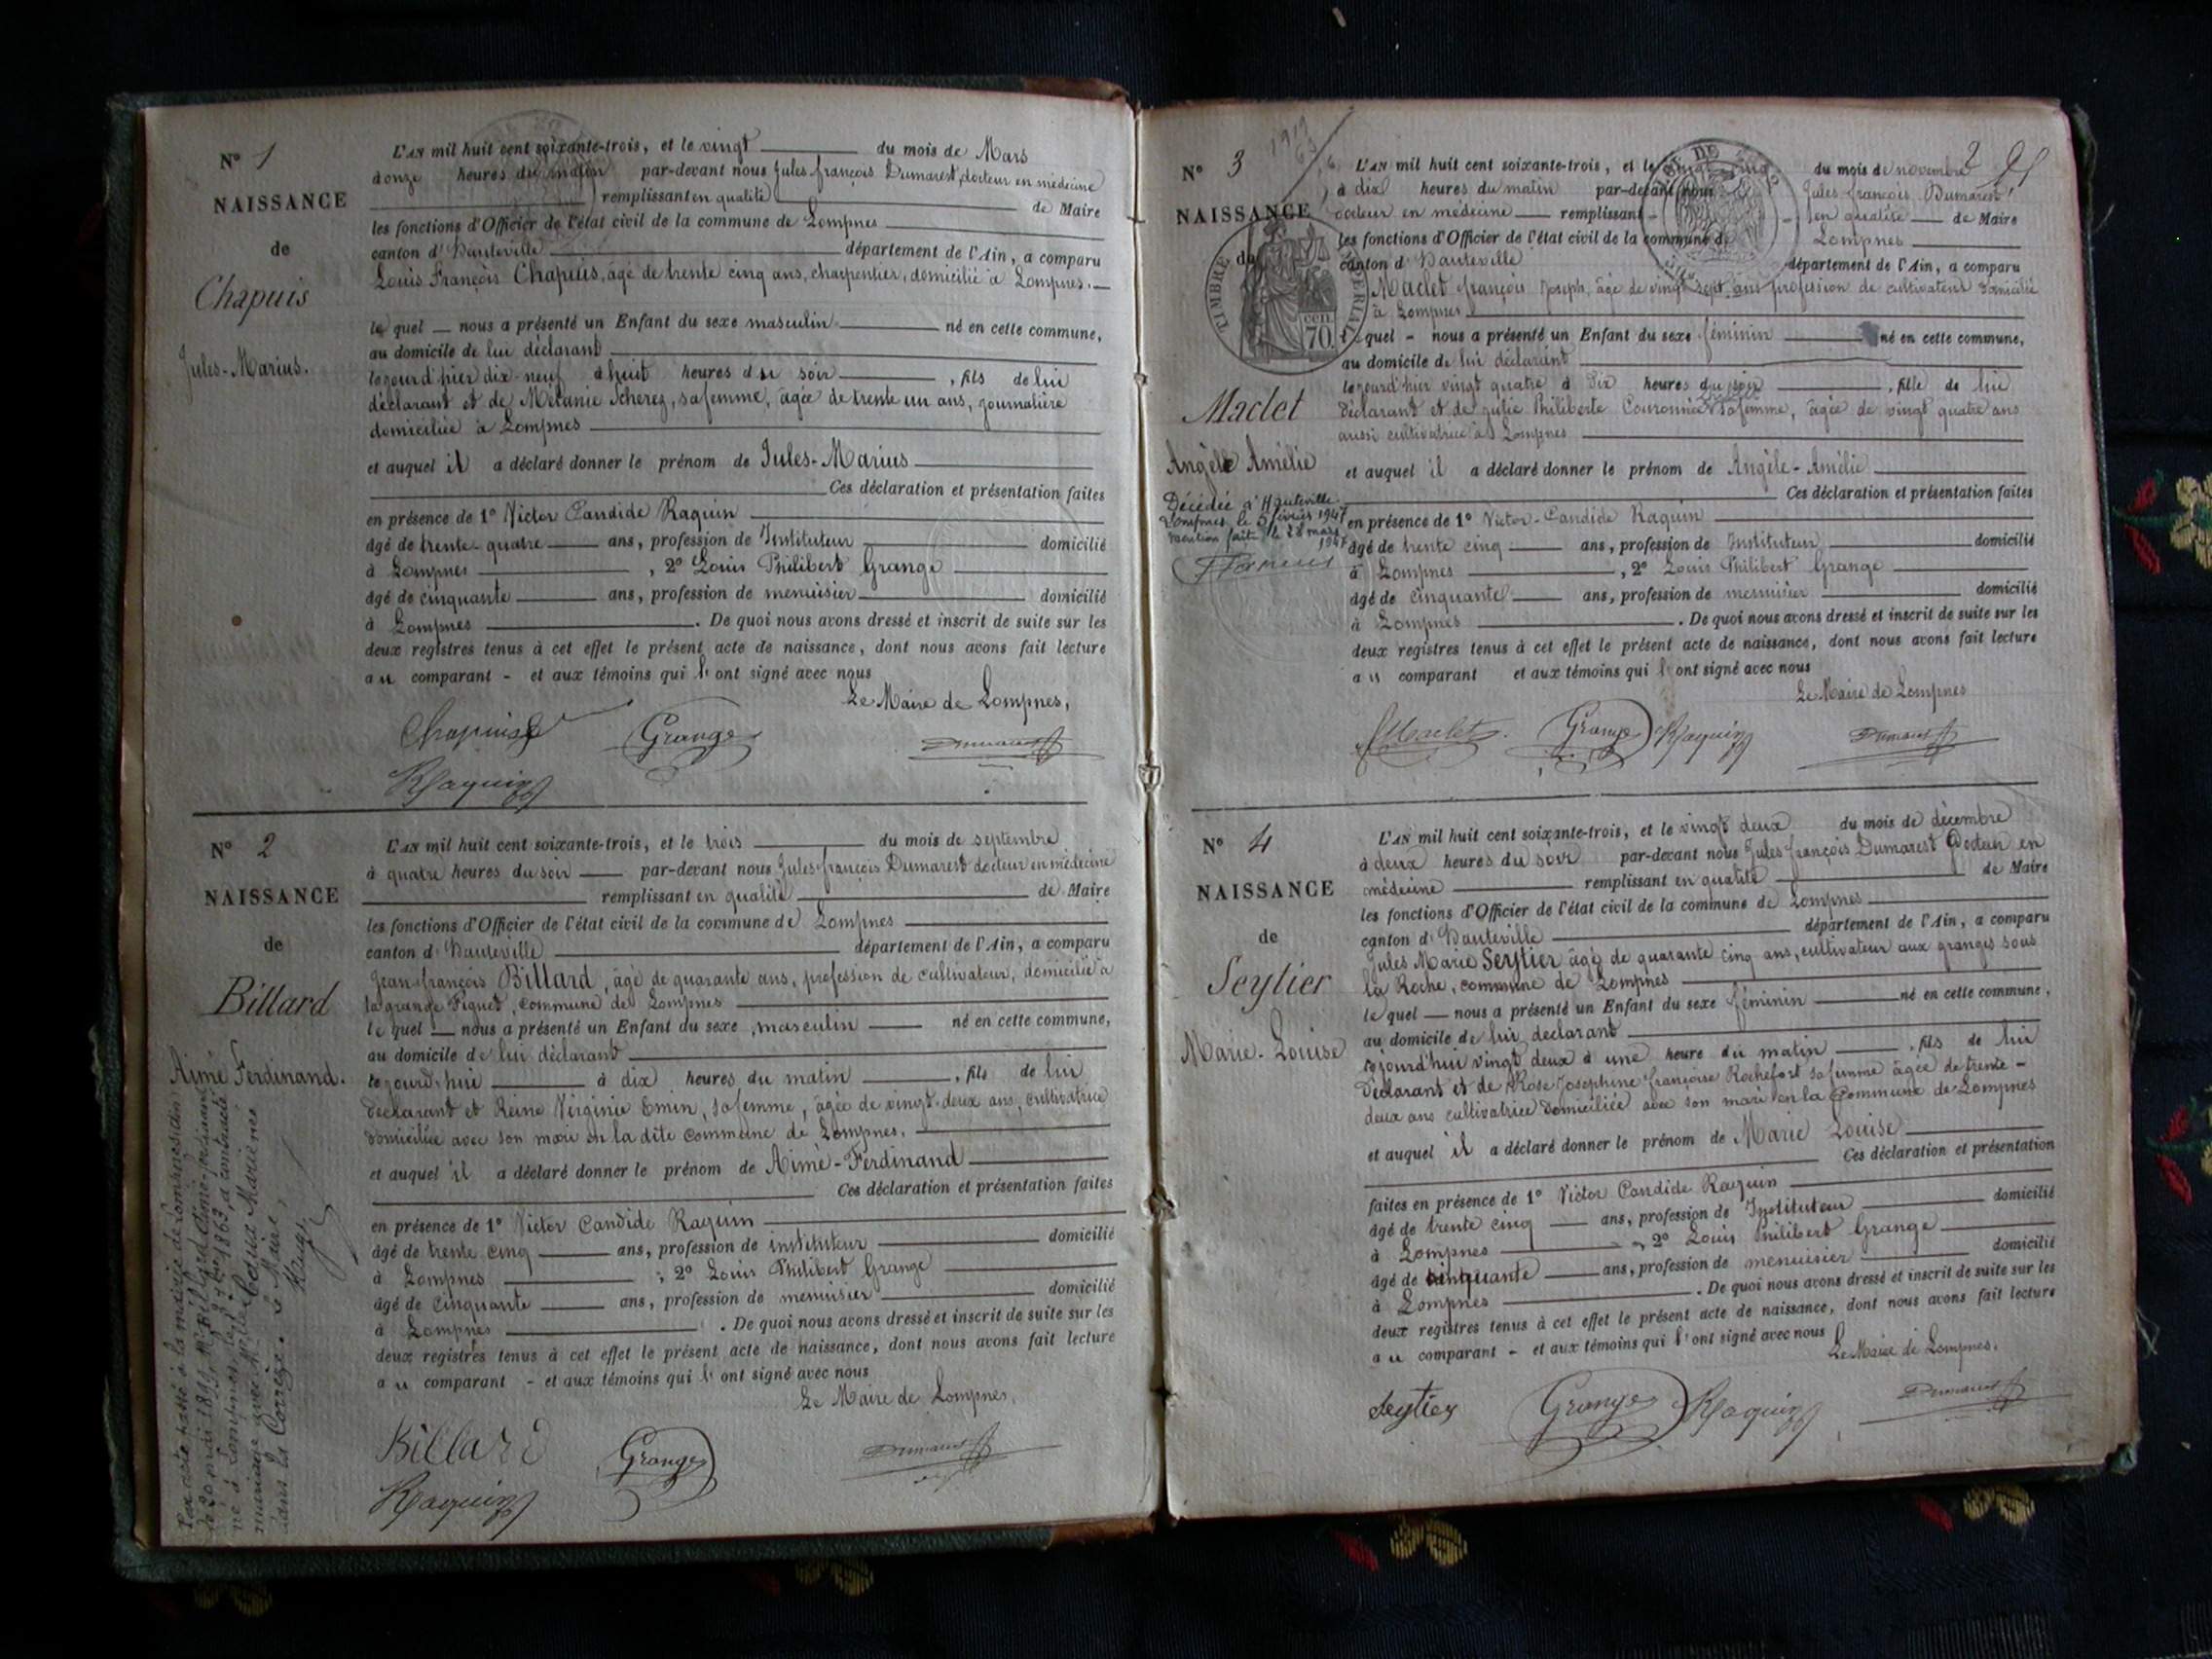 N° 1
NAISSANCE
de
Chapuis
Jules-Marius.
L'AN mil huit cent soixante-trois, et le vingt du mois de Mars
à onze heures du matin par-devant nous Jules françois Dumarest, docteur en médecine
remplissant en qualité de Maire
les fonctions d'Officier de l'état civil de la commune de Lompnes
canton d'Hauteville département de l'Ain, a comparu
Louis François Chapuis, âgé de trente cinq ans, charpentier, domicilié à Lompnes.
lequel nous a présenté un Enfant du sexe masculin né en cette commune,
au domicile de lui déclarant
le jour d'hier dix-neuf à huit heures du soir, fils de lui
déclarant et de Mélanie Scherez, sa femme, âgée de trente un ans, journalière
domiciliée à Lompnes
et auquel il a déclaré donner le prénom de Jules-Marius
Ces déclaration et présentation faites
en présence de 1° Victor Candide Raquin
âgé de trente-quatre ans, profession de Instituteur domicilié
à Lompnes, 2° Louis Philibert Grange
âgé de cinquante ans, profession de menuisier domicilié
à Lompnes. De quoi nous avons dressé et inscrit de suite sur les
deux registres tenus à cet effet le présent acte de naissance, dont nous avons fait lecture
au comparant - et aux témoins qui l'ont signé avec nous
Le Maire de Lompnes,
Chapuis Grange Dumarest
Raquin
N° 2
NAISSANCE
de
Billard
Aimé Ferdinand.
L'AN mil huit cent soixante-trois, et le trois du mois de septembre
à quatre heures du soir par-devant nous Jules françois Dumarest docteur en médecine
remplissant en qualité de Maire
les fonctions d'Officier de l'état civil de la commune de Lompnes
canton d'Hauteville département de l'Ain, a comparu
Jean-françois Billard, âgé de quarante ans, profession de cultivateur, domicilié à
la grange Figuet, commune de Lompnes
lequel nous a présenté un Enfant du sexe masculin né en cette commune,
au domicile de lui déclarant
le jourd'hui à dix heures du matin, fils de lui
déclarant et Reine Virginie Emin, sa femme, âgée de vingt-deux ans, cultivatrice
domiciliée avec son mari en la dite commune de Lompnes.
et auquel il a déclaré donner le prénom de Aimé-Ferdinand
Ces déclaration et présentation faites
en présence de 1° Victor Candide Raquin
âgé de trente cinq ans, profession de instituteur domicilié
à Lompnes; 2° Louis Philibert Grange
âgé de cinquante ans, profession de menuisier domicilié
à Lompnes. De quoi nous avons dressé et inscrit de suite sur les
deux registres tenus à cet effet le présent acte de naissance, dont nous avons fait lecture
au comparant - et aux témoins qui l'ont signé avec nous
Le Maire de Lompnes,
Billard Grange Dumarest
Raquin
Par acte passé à la mairie de
le 20 mai 1899, Mr Billard Aimé-ferdinand
né à Lompnes, le 3 7bre 1863, a contracté
mariage avec Mlle Marie née
dans la Corrèze. Le Maire,
2
N° 3
NAISSANCE
de
Maclet
Angèle Amélie
Décédée à Hauteville-
Lompnes le 5 février 1947
mention faite le 28 mars
1947
TIMBRE IMPÉRIAL
70 cen.
L'AN mil huit cent soixante-trois, et le vingt cinq du mois de novembre
à dix heures du matin par-devant nous Jules françois Dumarest,
docteur en médecine remplissant en qualité de Maire
les fonctions d'Officier de l'état civil de la commune de Lompnes
canton d'Hauteville département de l'Ain, a comparu
Maclet françois Joseph, âgé de vingt sept ans profession de cultivateur domicilié
à Lompnes
lequel - nous a présenté un Enfant du sexe féminin né en cette commune,
au domicile de lui déclarant
le jourd'hier vingt quatre à dix heures du soir, fille de lui
déclarant et de Julie Philiberte Couronnée sa femme, âgée de vingt quatre ans
aussi cultivatrice à Lompnes
et auquel il a déclaré donner le prénom de Angèle-Amélie
Ces déclaration et présentation faites
en présence de 1° Victor-Candide Raquin
âgé de trente cinq ans, profession de Instituteur domicilié
à Lompnes, 2° Louis Philibert Grange
âgé de cinquante ans, profession de menuisier domicilié
à Lompnes. De quoi nous avons dressé et inscrit de suite sur les
deux registres tenus à cet effet le présent acte de naissance, dont nous avons fait lecture
au comparant et aux témoins qui l'ont signé avec nous
Le Maire de Lompnes
Maclet Grange Raquin Dumarest
N° 4
NAISSANCE
de
Seytier
Marie-Louise
L'AN mil huit cent soixante-trois, et le vingt deux du mois de décembre
à deux heures du soir par-devant nous Jules françois Dumarest Docteur en
médecine remplissant en qualité de Maire
les fonctions d'Officier de l'état civil de la commune de Lompnes
canton d'Hauteville département de l'Ain, a comparu
Jules Marie Seytier âgé de quarante cinq ans, cultivateur aux granges sous
la Roche, commune de Lompnes
lequel nous a présenté un Enfant du sexe féminin né en cette commune,
au domicile de lui déclarant
cejourd'hui vingt deux à une heure du matin, fils de lui
Déclarant et de Rose Josephine françoise Rochefort sa femme âgée de trente-
deux ans cultivatrice domiciliée avec son mari en la Commune de Lompnes
et auquel il a déclaré donner le prénom de Marie Louise
Ces déclaration et présentation
faites en présence de 1° Victor Candide Raquin
âgé de trente cinq ans, profession de Instituteur domicilié
à Lompnes, 2° Louis Philibert Grange
âgé de cinquante ans, profession de menuisier domicilié
à Lompnes. De quoi nous avons dressé et inscrit de suite sur les
deux registres tenus à cet effet le présent acte de naissance, dont nous avons fait lecture
au comparant - et aux témoins qui l'ont signé avec nous
Le Maire de Lompnes.
Seytier Grange Raquin Dumarest